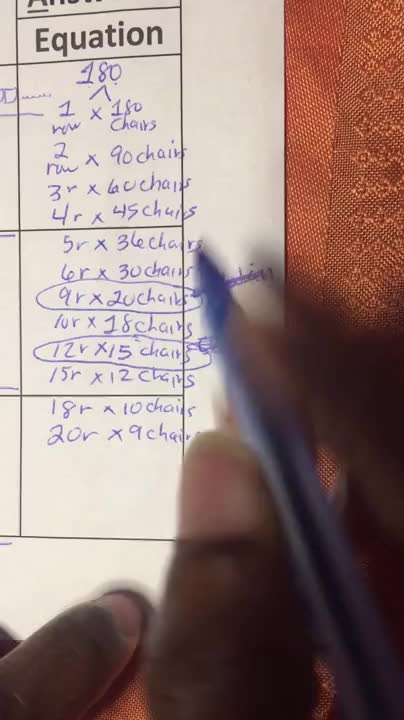 Equation
180
1 row × 180 chairs
2 row × 90 chairs
3r × 60 chairs
4r × 45 chairs
5r × 36 chairs
6r × 30 chairs
9r × 20 chairs
10r × 18 chairs
12r × 15 chairs
15r × 12 chairs
18r × 10 chairs
20r × 9 chairs